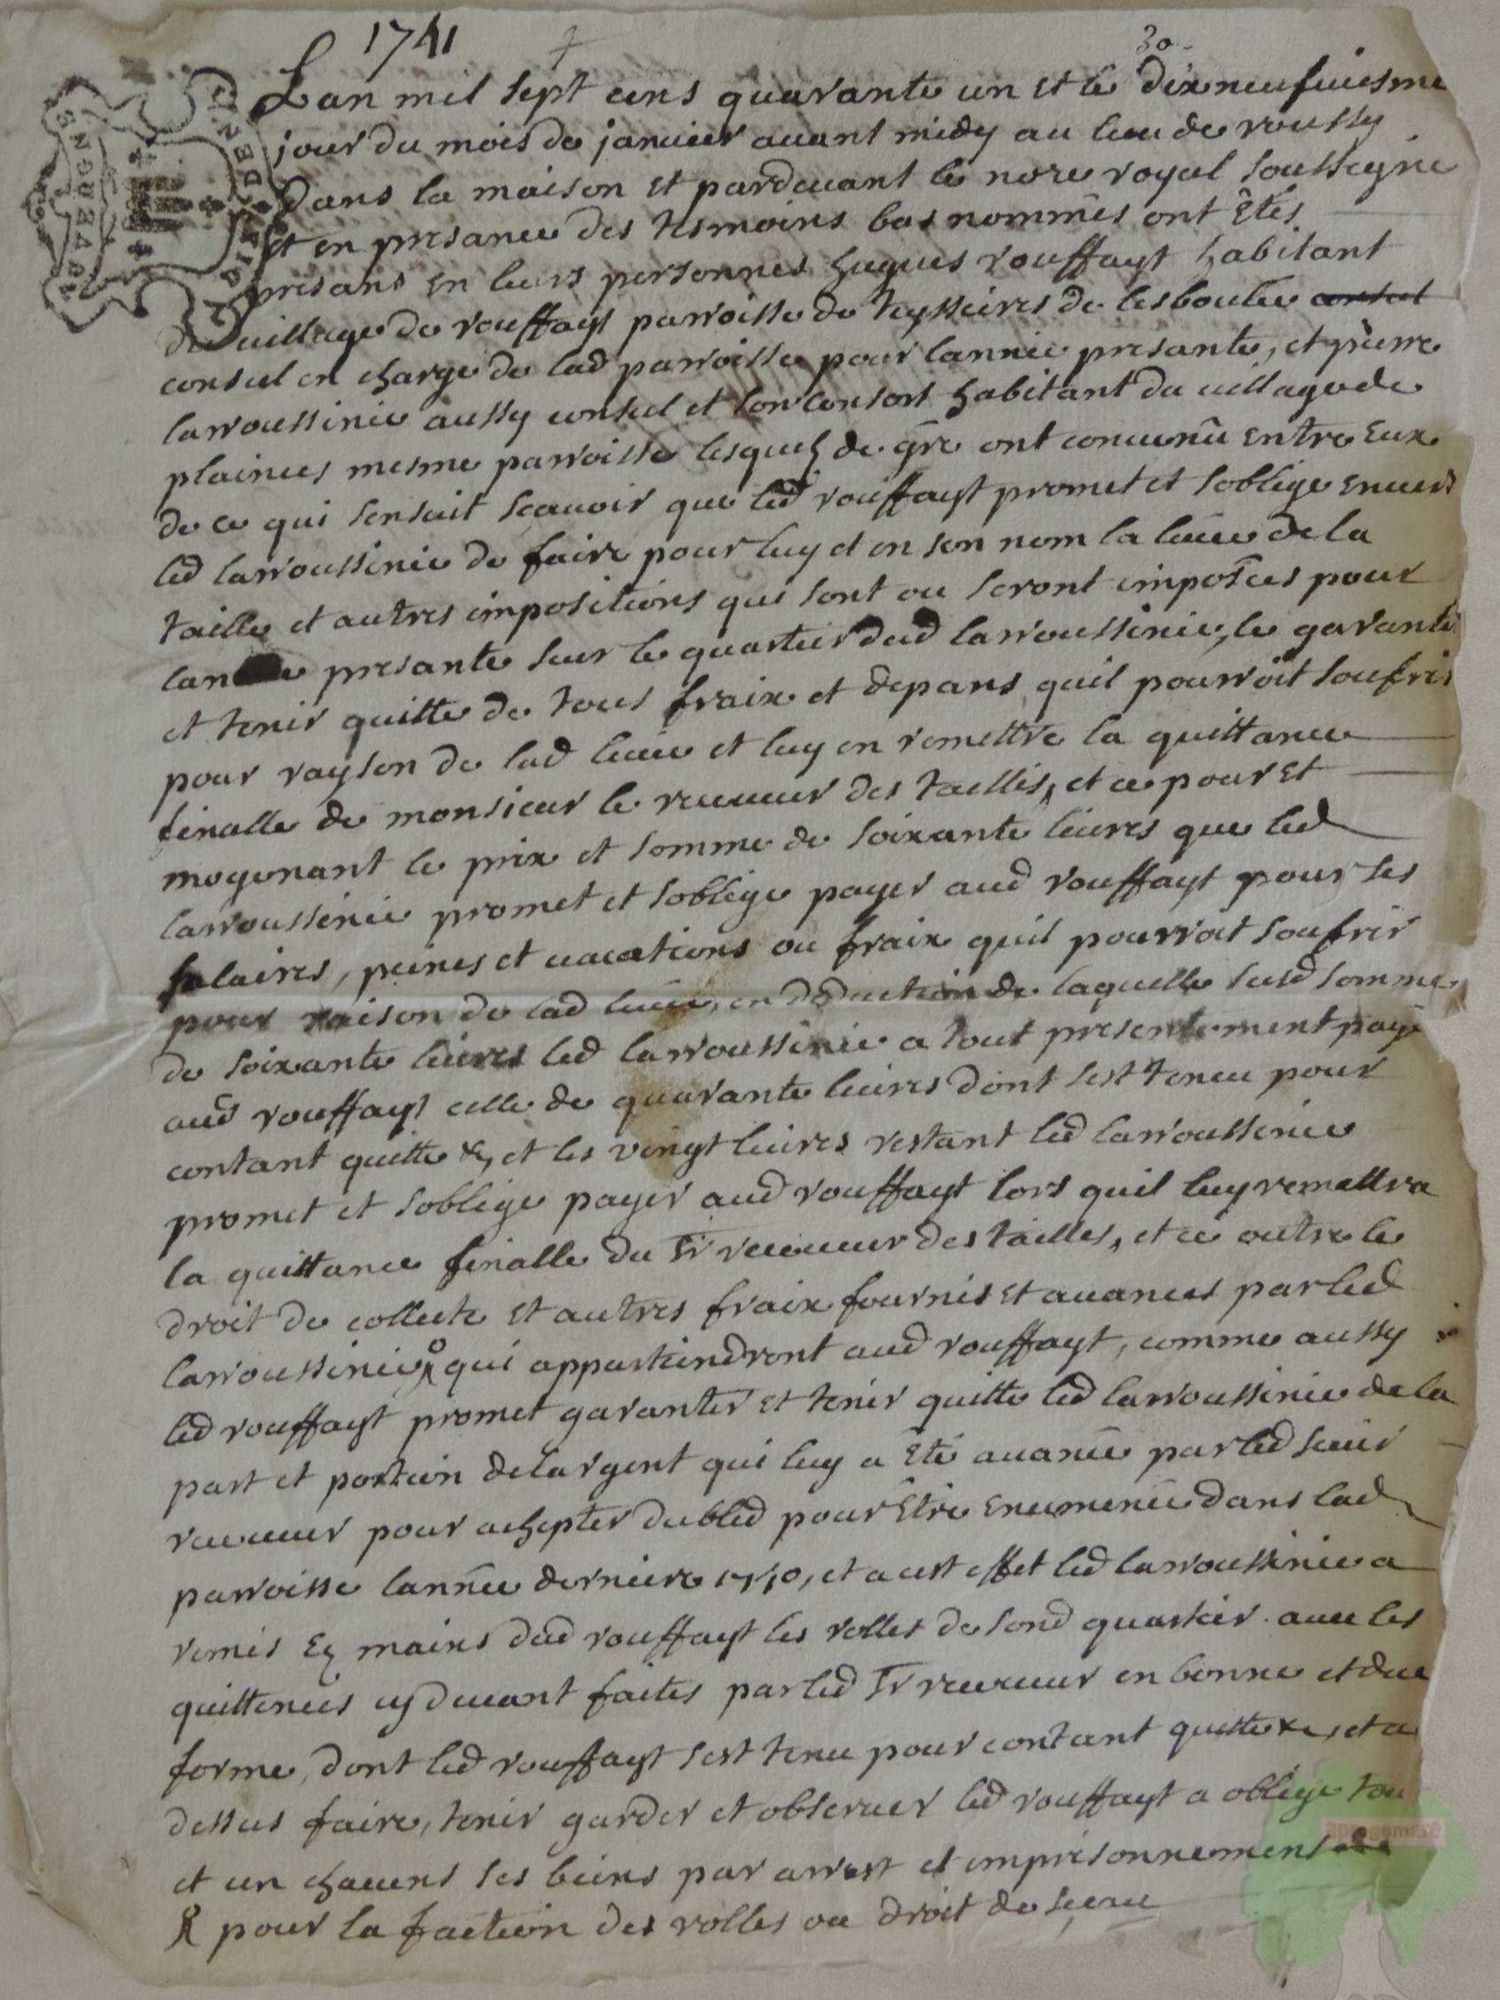 1741
30
Lan mil sept cens quarante un et le dixneufuiesme
jour du mois de januier auant midy au lieu de roussy
dans la maison et pardeuant le nore royal soussigne
et en presance des tesmoins bas nommés ont êtés
presans en leurs personnes hugues rouffayt habitant
du uillage de rouffayt parroisse de teyssieres de lesboulie consul
consul en charge de lad parroisse pour lannee presante, et pierre
larroussinie aussy consul et son consort habitant du uillage de
plainies mesme parroisse lesquels de gre ont conuenû entre eux
de ce qui sensuit scauoir que led rouffayt promet et soblige enuers
led larroussinie de faire pour luy et en son nom la leuée de la
taille et autres impositions qui sont ou seront imposées pour
lannée presante sur le quartier dud larroussinie, le garantir
et tenir quitte de tous fraix et depans quil pourroit soufrir
pour rayson de lad leuée et luy en remettre la quittance
finalle de monsieur le receueur des tailles, et ce pour et
moyenant le prix et somme de soixante liures que led
larroussinie promet et soblige payer aud rouffayt pour ses
salaires, peines et uacations ou fraix quil pourroit soufrir
pour raison de lad leuée, en deduction de laquelle susd somme
de soixante liures led larroussinie a tout presentement payé
aud rouffayt celle de quarante liures dont sest tenu pour
contant quitte &, et les vingt liures restant led larroussinie
promet et soblige payer aud rouffayt lors quil luy remettra
la quittance finalle du Sr receueur des tailles, et ce outre le
droit de collecte et autres fraix fournis et auances par led
larroussinie qui appartiendront aud rouffayt, comme aussy
led rouffayt promet garantir et tenir quitte led larroussinie de la
part et portion de largent qui luy a été auancé par led sieur
receueur pour achepter du bled pour être ensemencé dans lad
parroisse lannée derniere 1740, et a cest effet led larroussinie a
remis ez mains dud rouffayt les rolles de sond quartier auec les
quittences cy deuant faites par led Sr receueur en bonne et due
forme, dont led rouffayt sest tenu pour contant quitte &, et a
dessus faire, tenir garder et obseruer led rouffayt a oblige tou
et un chacuns ses biens par arrest et imprisonnement
pour la faction des rolles ou droit de sceau
apregomere